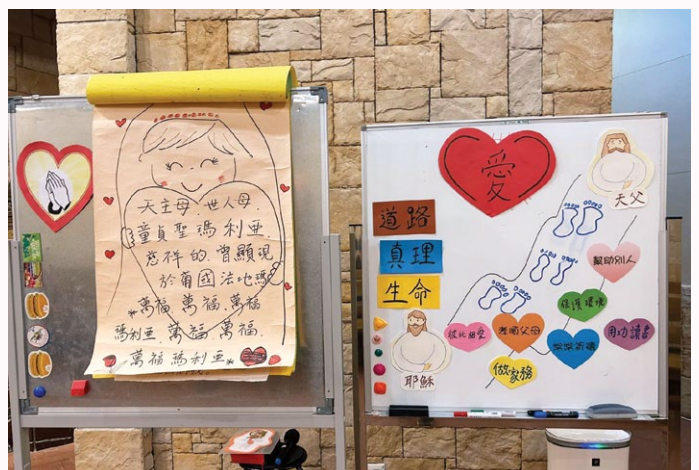 天主母、世人母,
童貞聖瑪利亞.
慈祥的,曾顯現
於葡國法地瑪
萬福 萬福 萬福
瑪利亞. 萬福 萬福.
萬福 瑪利亞
愛
天父
道路
真理
生命
幫助別人
保護環境
彼此相愛
孝順父母
常常祈禱
用功讀書
做家務
耶穌